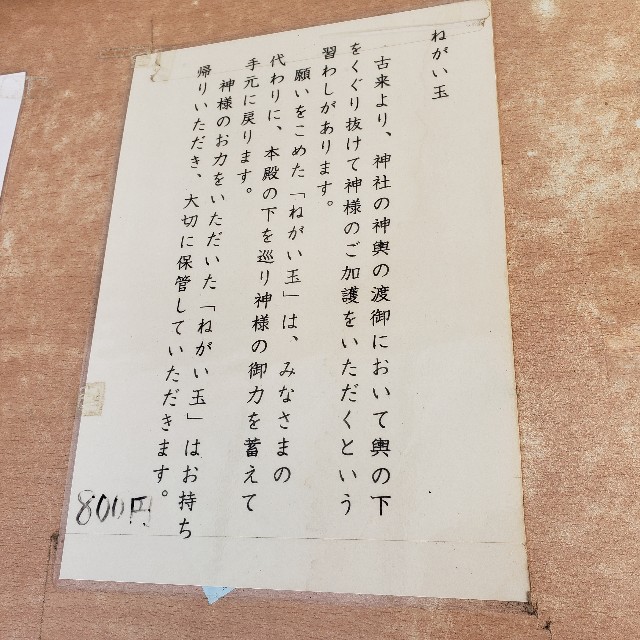 ねがい玉
古来より、神社の神輿の渡御において輿の下
をくぐり抜けて神様のご加護をいただくという
習わしがあります。
願いをこめた「ねがい玉」は、みなさまの
代わりに、本殿の下を巡り神様の御力を蓄えて
手元に戻ります。
神様のお力をいただいた「ねがい玉」はお持ち
帰りいただき、大切に保管していただきます。
800円